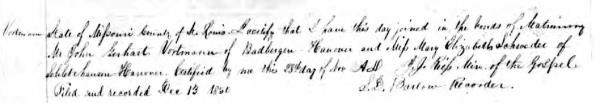 Vortmann State of Missouri County of St Louis I certify that I have this day joined in the bonds of Matrimony
Mr John Gerhart Vortmann of Badbergen Hanover and Miss Mary Elizabeth Schroeder of
Hanover. Certified by me this 28th day of Nov A.D. Min. of the Gospel
Filed and recorded Dec 13 S. D. Barlow Recorder.